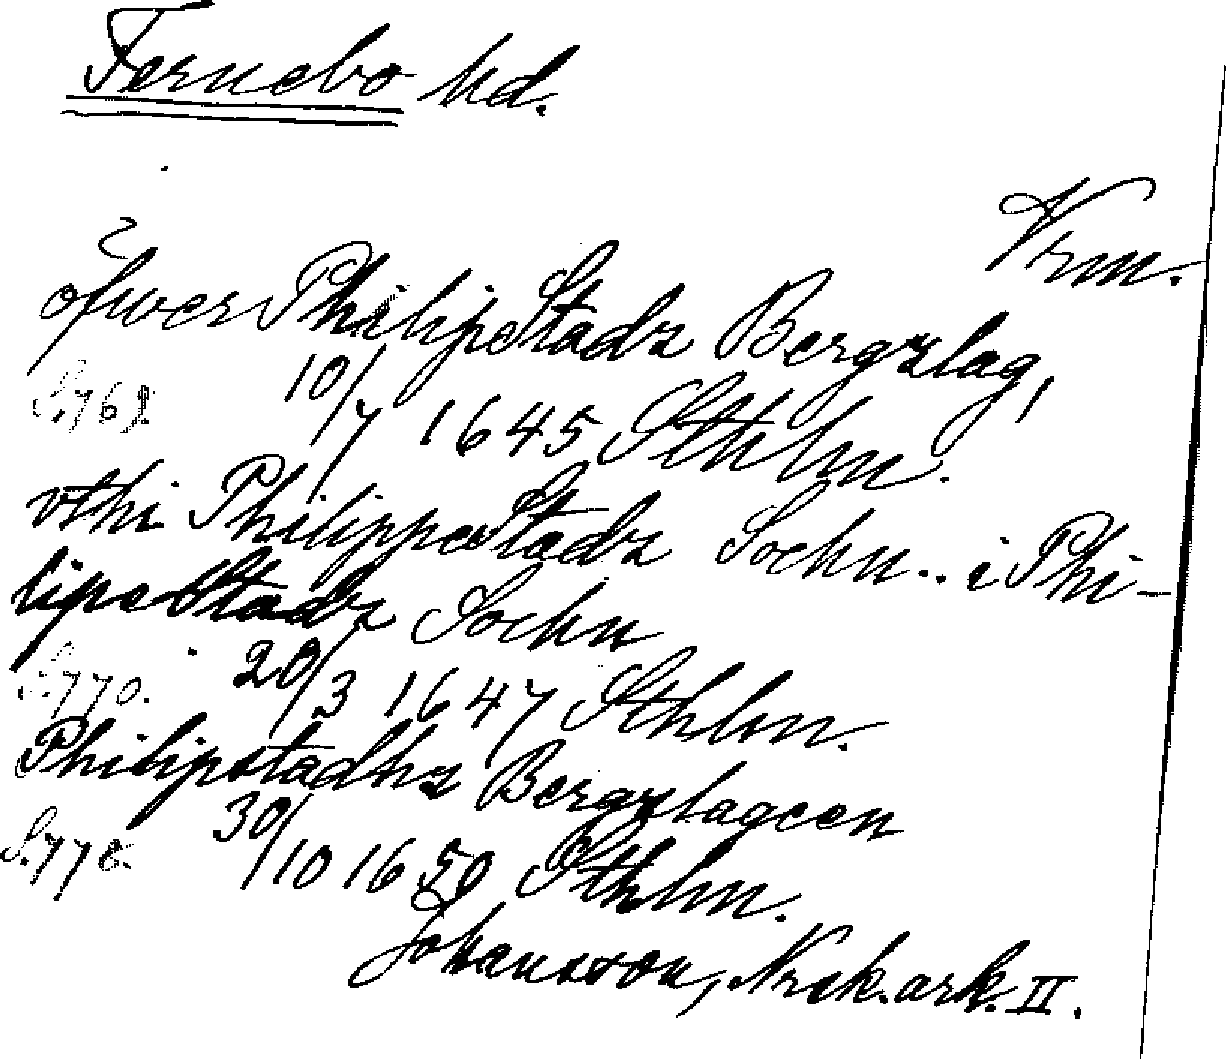 Fernebo hd.
Vrm.
öfwer Philipstadz Bergzlag,
S. 762 10/7 1645 Sthlm.
vthi Philippestadz Sochn.. i Phi-
lipestadz Sochn
S. 770. 20/3 1647 Sthlm.
Philipstadhz Bergzlageen
S. 778. 30/10 1650 Sthlm.
Johansson, Nrsk. ark. II.